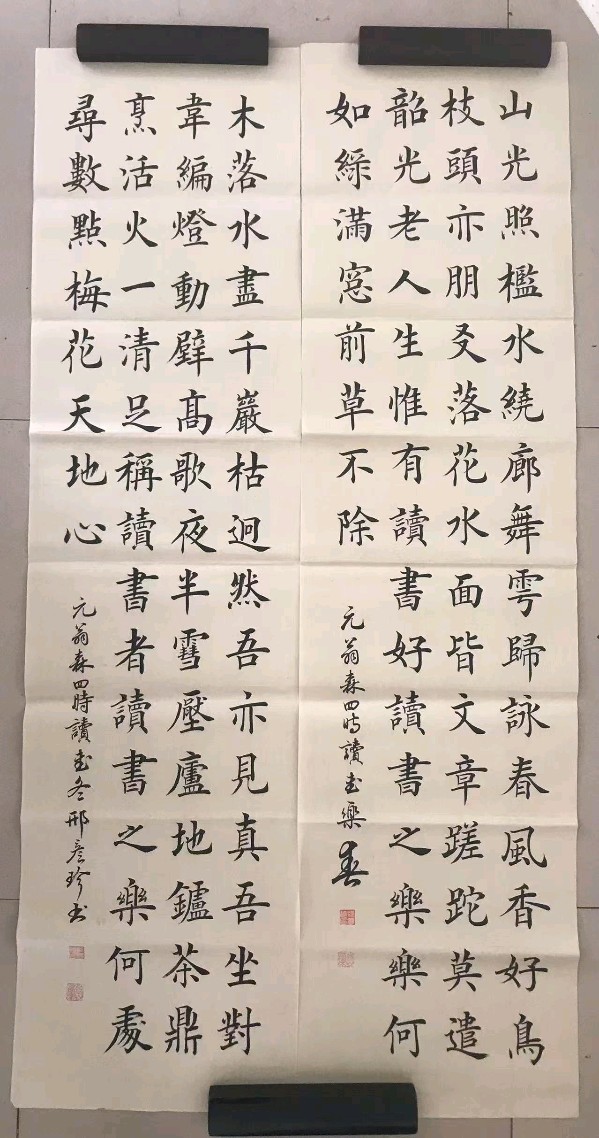 山光照檻水繞廊舞雩歸詠春風香好鳥
枝頭亦朋友落花水面皆文章蹉跎莫遣
韶光老人生惟有讀書好讀書之樂樂何
如綠滿窓前草不除
元翁森四時讀書樂春
木落水盡千巖枯迥然吾亦見真吾坐對
韋編燈動壁髙歌夜半雪壓廬地鑪茶鼎
烹活火一清足稱讀書者讀書之樂何處
尋數點梅花天地心
元翁森四時讀書冬邢彥珍書